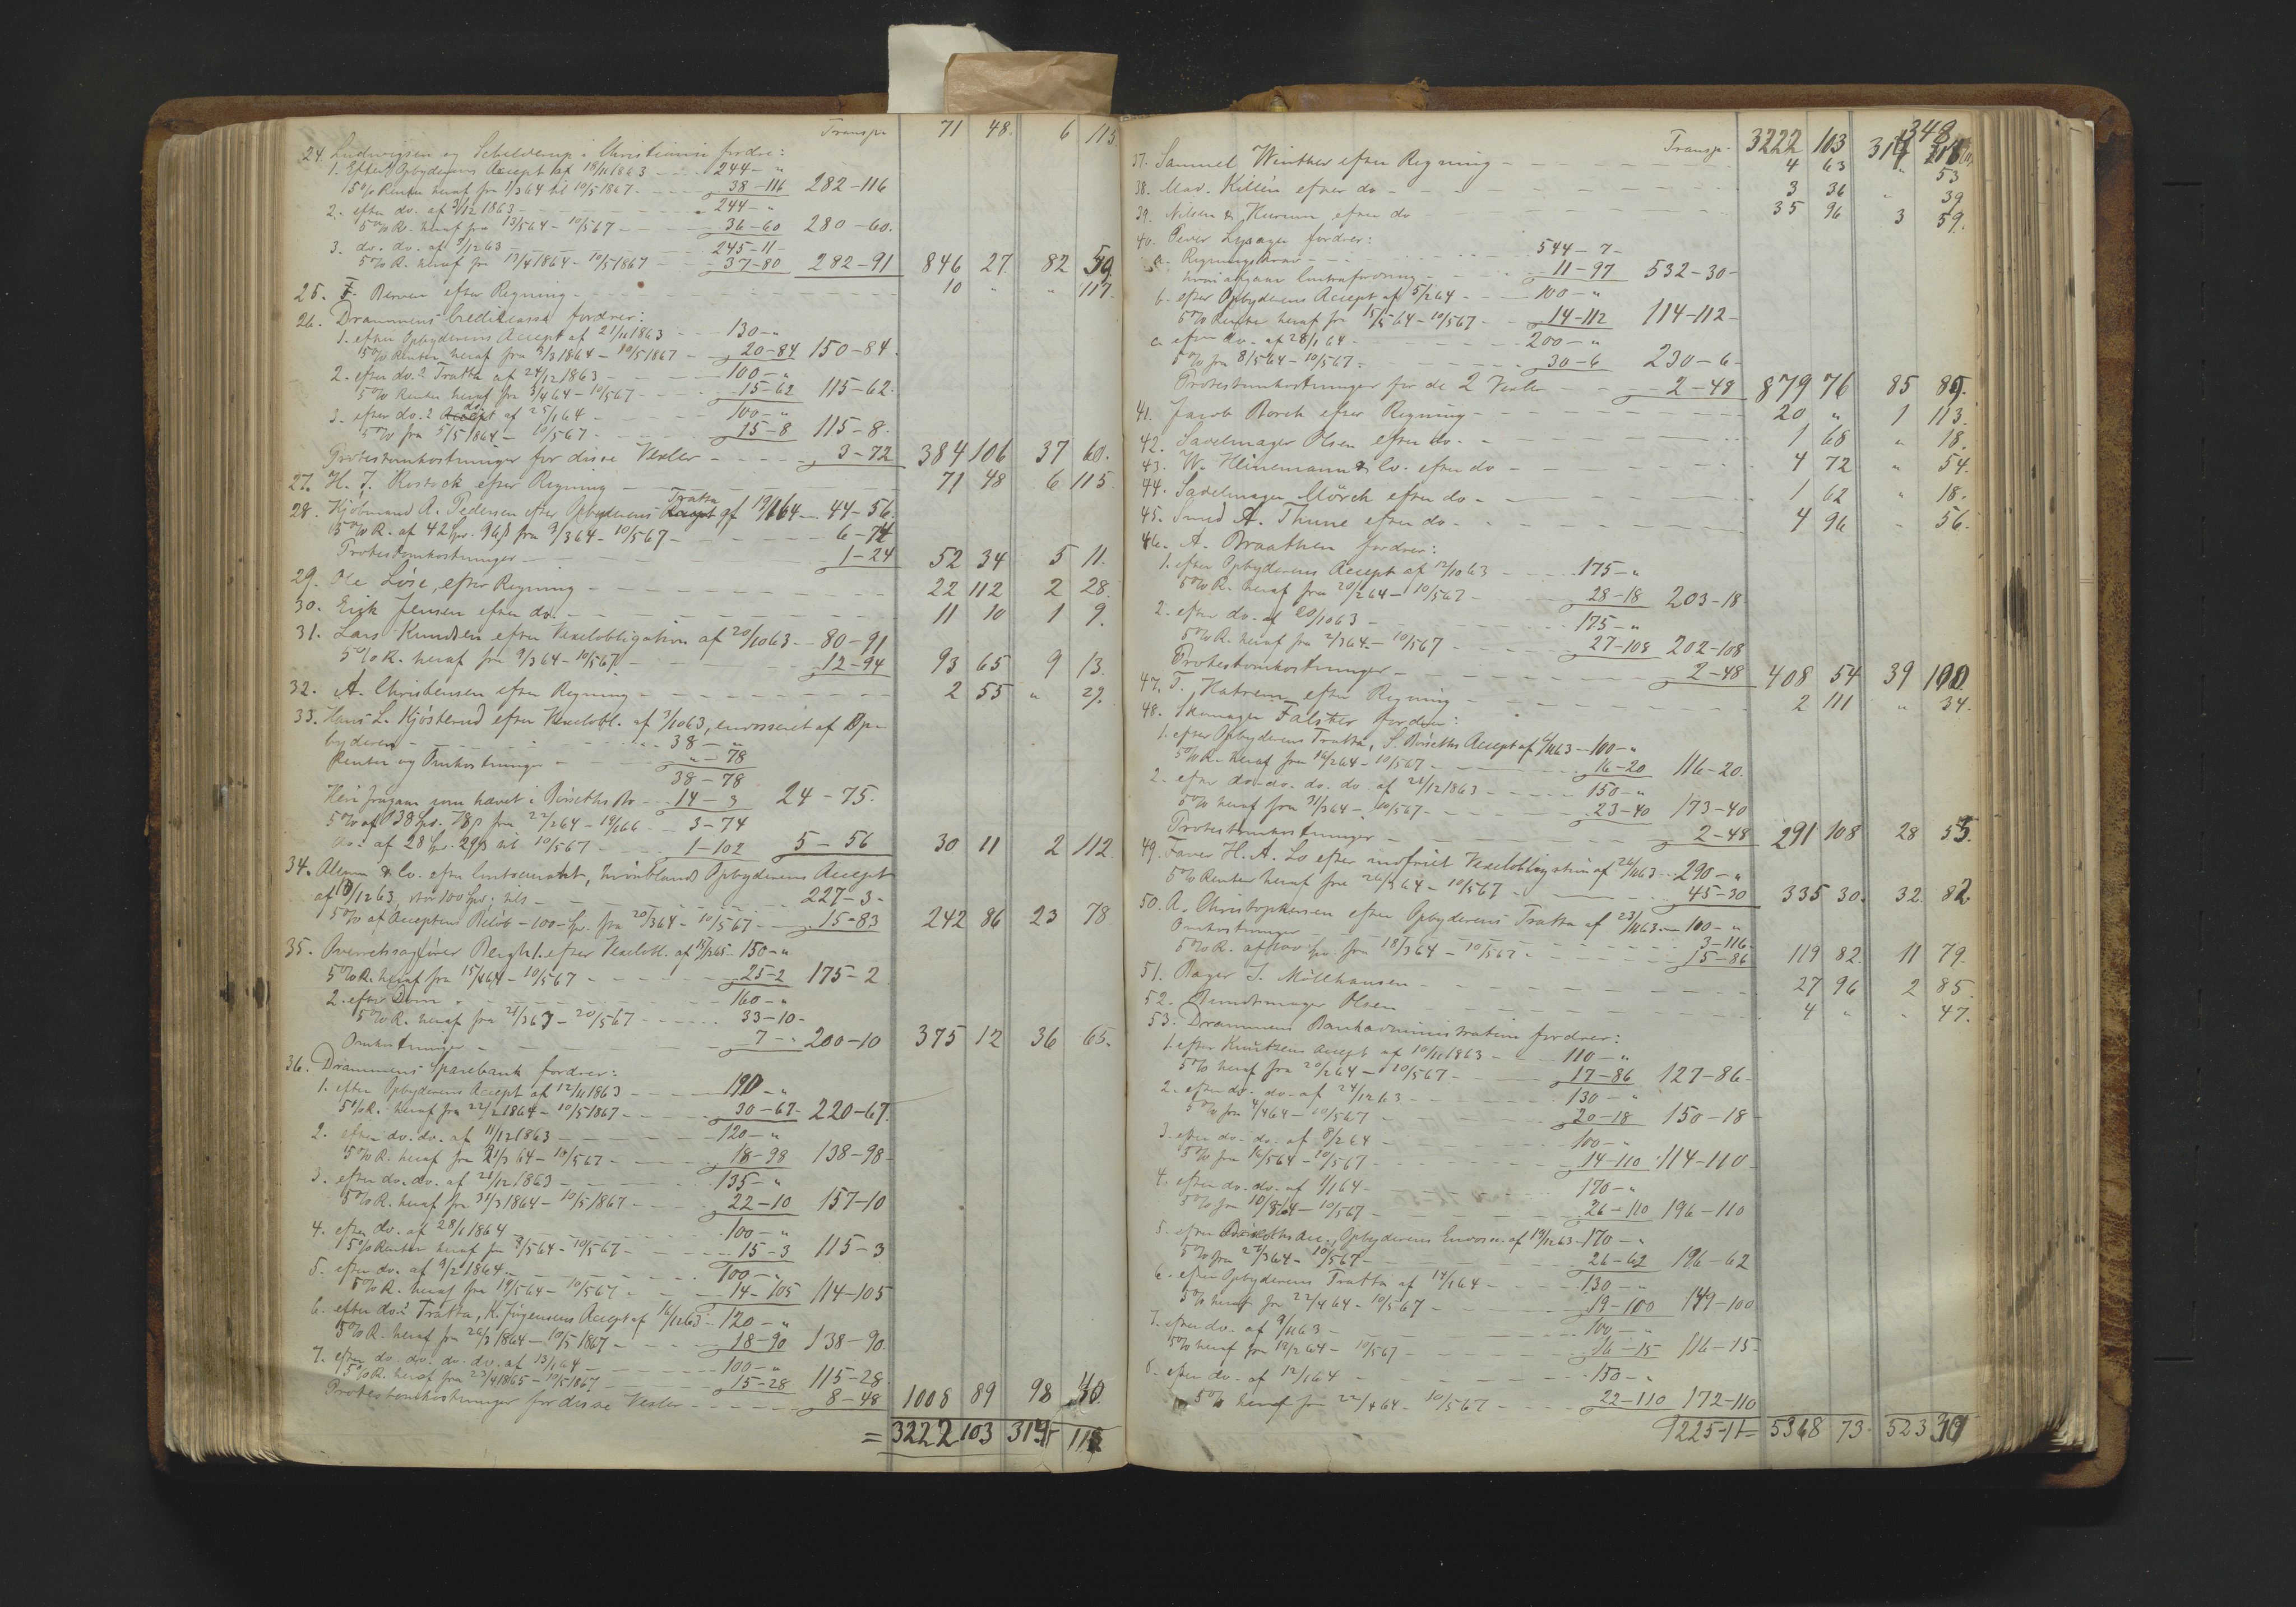 Transp. 71 48. 6 115
24. Ludwigsen og Schelderup i Christiania fordre:
1. Efter Opbyderens Accept af 18/11 1863 - - 244 - "
5% Renter heraf fra 1/3 64 til 10/5 1867 - - 38-116 282-116
2. efter do. af 3/12 1863 - - - 244 - "
5% R. heraf fra 13/5 64 - 10/5 67 - - 36-60 280-60.
3. do. do. af 9/12 63 - - - 245-11-
5% R. heraf fra 13/4 1864 - 10/5 1867 - - 37-80 282-91 846 27. 82 50
25. F. Berven efter Regning - - - 10 " " 117.
26. Drammens Creditcasse fordrer:
1. efter Opbyderens Accept af 21/11 1863 - 130-"
5% Renter heraf fra 9/3 1864 - 10/5 1867 - 20-84 150-84.
2. efter do.s Tratta af 24/12 1863 - - 100-"
5% Renter heraf fra 3/4 64 - 10/5 67 - 15-62 115-62.
3. efter do.s do af 25/1 64 - - 100-"
5% fra 5/5 1864 - 10/5 67 - - 15-8 115-8.
Protestomkostninger for disse Vexler - - - 3-72 384 106 37 60.
27. H. J. Rostock efter Regning - - - 71 48 6 115
28. Kjöbmand A. Pedersen efter Opbyderens Tratta af 19/1 64 - 44-56.
5% R. af 42 Spd. 96 ß fra 9/3 64 - 10/5 67 - - - 6-74
Protestomkostninger - - - 1-24 52 34 5 11.
29. Ole Löse, efter Regning - - - 22 112 2 28.
30. Erik Jensen efter do. - - - 11 10 1 9.
31. Lars Knudsen efter Vexelobligation af 20/10 63 - - 80-91
5% R. heraf fra 9/3 64 - 10/5 67 - - - 12-94 93 65 9 13.
32. A. Christensen efter Regning - - - 2 55 " 29.
33. Hans L. Kjösterud efter Vexelobl. af 3/10 63, endosseret af Op-
byderen - - - 38-"
Renter og Omkostninger - - - "-78
38-78
Heri fragaar som hævet i Böseths Bo - - 14-3 24-75.
5% af 38 Spd. 78 ß fra 22/2 64 - 19/1 66 - - 3-74
do. af 28 Sp. 29 ß til 10/5 67 - - 1-102 5-56 30 11 2 112.
34. Alum & Co. efter Contocourant, hvoriblandt Opbyderens Accept
af 10/12 63, stor 100 Spd; tils. - - - 227-3-
5% af Acceptens Belöb - 100 - Sp. fra 20/3 64 - 10/5 67 - - 15-83 242 86 23 78
35. Overretssagförer Bergh 1. efter Vexelobl. af 15/1 65 - 150-"
5% R. heraf fra 15/1 64 - 10/5 67 - - - 25-2 175-2
2. efter Dom - - - 160-"
5% R. heraf fra 21/3 63 - 20/5 67 - - 33-10-
Omkostninger - - - 7-" 200-10 375 12 36 65.
36. Drammens Sparebank fordrer:
1. efter Opbyderens Accept af 12/11 1863 - - 190-"
5% R. heraf fra 22/2 1864 - 10/5 1867 - - 30-67- 220-67.
2. efter do. do. af 11/12 1863 - - - 120-"
5% R. heraf fra 21/3 64 - 10/5 67 - - 18-98 138-98-
3. efter do. do. af 21/12 1863 - - - 135-"
5% R. heraf fra 31/3 1864 - 10/5 1867 - - 22-10 157-10
4. efter do. af 28/1 1864 - - - 100-"
5% Renter heraf fra 8/5 64 - 10/5 67 - - 15-3 115-3
5. efter do. af 9/2 1864 - - - 100-"
5% R. heraf fra 19/5 64 - 10/5 67 - - 14-105 114-105
6. efter do.s Tratta, K. Jörgensens Accept af 16/12 63 - 120-"
5% R. heraf fra 26/3 1864 - 10/5 1867 - - 18-90 138-90.
7. efter do. do. do. do. af 13/1 64 - - 100-"
5% R. heraf fra 23/4 1865 - 10/5 1867 - - 15-28 115-28.
Protestomkostninger for disse Vexler - - - 8-48 1008 89 98
= 3222 103
Transp. 3222 103 348
37. Samuel Winther efter Regning - - - 4 63 " 53
38. Mad. Killén efter do - - - 3 36 " 39
39. Nilsen & Hurum efter do - - - 35 96 3 59.
40. Peder Lysager fordrer:
a. Regningskrav - - - 544-7-
hvori afgaar Contrafordring - - - 11-97 532-30-
b. efter Opbyderens Accept af 5/2 64 - - 100-"
5% Renter heraf fra 15/5 64 - 10/5 67 - - 14-112 114-112-
c. efter do. af 28/1 64 - - - 200-"
5% fra 8/5 64 - 10/5 67 - - - 30-6 230-6-
Protestomkostninger for de 2 Vexler - - - 2-48 879 76 85 85.
41. Jacob Borch efter Regning - - - 20 " 1 113.
42. Sadelmager Olsen efter do. - - 1 68 " 18.
43. W. Heinemann & Co. efter do - - - 4 72 " 54.
44. Sadelmager Mörch efter do - - - 1 62 " 18.
45. Smed A. Thune efter do - - - 4 96 " 56.
46. A. Braathen fordrer:
1. efter Opbyderens Accept af 12/10 63 - - - 175-"
5% R. heraf fra 20/2 64 - 10/5 67 - - 28-18 203-18.
2. efter do. af 20/10 63 - - - 175-"
5% R. heraf fra 2/3 64 - 10/5 67 - - 27-108 202-108
Protestomkostninger - - - 2-48 408 54 39 100
47. T. Hatrem efter Regning - - - 2 111 " 34.
48. Skomager Falster fordrer:
1. efter Opbyderens Tratta, S. Böseths Accept af 6/11 63 - 100-"
5% R. heraf fra 16/2 64 - 10/5 67 - - - 16-20 116-20.
2. efter do. do. do. do. af 21/12 1863 - - - 150-"
5% heraf fra 31/3 64 - 10/5 67 - - - 23-40 173-40
Protestomkostninger - - - 2-48 291 108 28 55.
49. Farver H. A. Lo efter indfriet Vexelobligation af 26/11 63 - 290-"
5% Renter heraf fra 26/3 64 - 10/5 67 - - 45-30 335 30. 32 82
50. A. Christophersen efter Opbyderens Tratta af 23/11 63 - 100-"
Omkostninger - - - 3-116-
5% R. af 100 Sp. fra 18/3 64 - 10/5 67 - - - 15-86 119 82. 11 79.
51. Bager J. Möllhausen - - - 27 96 2 85.
52. Bundtmager Olsen - - - 4 " " 47.
53. Drammens Bankadministration fordrer:
1. efter Knutzens Accept af 10/11 1863 - - 110-"
5% heraf fra 20/2 64 - 10/5 67 - - - 17-86 127-86-
2. efter do. do. af 24/12 63 - - - 130-"
5% fra 4/4 64 - 10/5 67 - - - 20-18 150-18-
3. efter do. do. af 8/2 64 - - - 100-"
5% fra 16/5 64 - 10/5 67 - - - 14-110 114-110-
4. efter do. do. af 1/1 64 - - - 170-"
5% fra 10/3 64 - 10/5 67 - - - 26-110 196-110
5. efter Böseths Acc., Opbyderens Endoss. af 19/12 63 - 170-"
5% fra 27/3 64 - 10/5 67 - - - 26-62 196-62
6. efter Opbyderens Tratta af 14/1 64 - - - 130-"
5% heraf fra 22/4 64 - 10/5 67 - - - 19-100 149-100
7. efter do. af 9/11 63 - - - 100-"
5% heraf fra 19/2 64 - 10/5 67 - - - 16-15 116-15-
8. efter do. af 12/1 64 - - - 150-"
5% heraf fra 22/4 64 - 10/5 67 - - - 22-110 172-110
1225-11 = 5368 73. 523